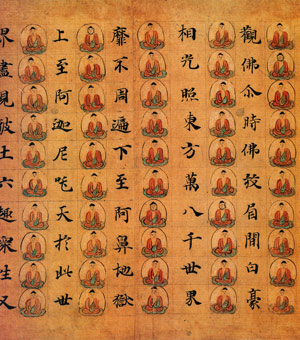 觀佛尒時佛放眉間白豪
相光照東方萬八千世界
靡不周遍下至阿鼻地獄
上至阿迦尼吒天於此世
界盡見彼土六趣眾生又